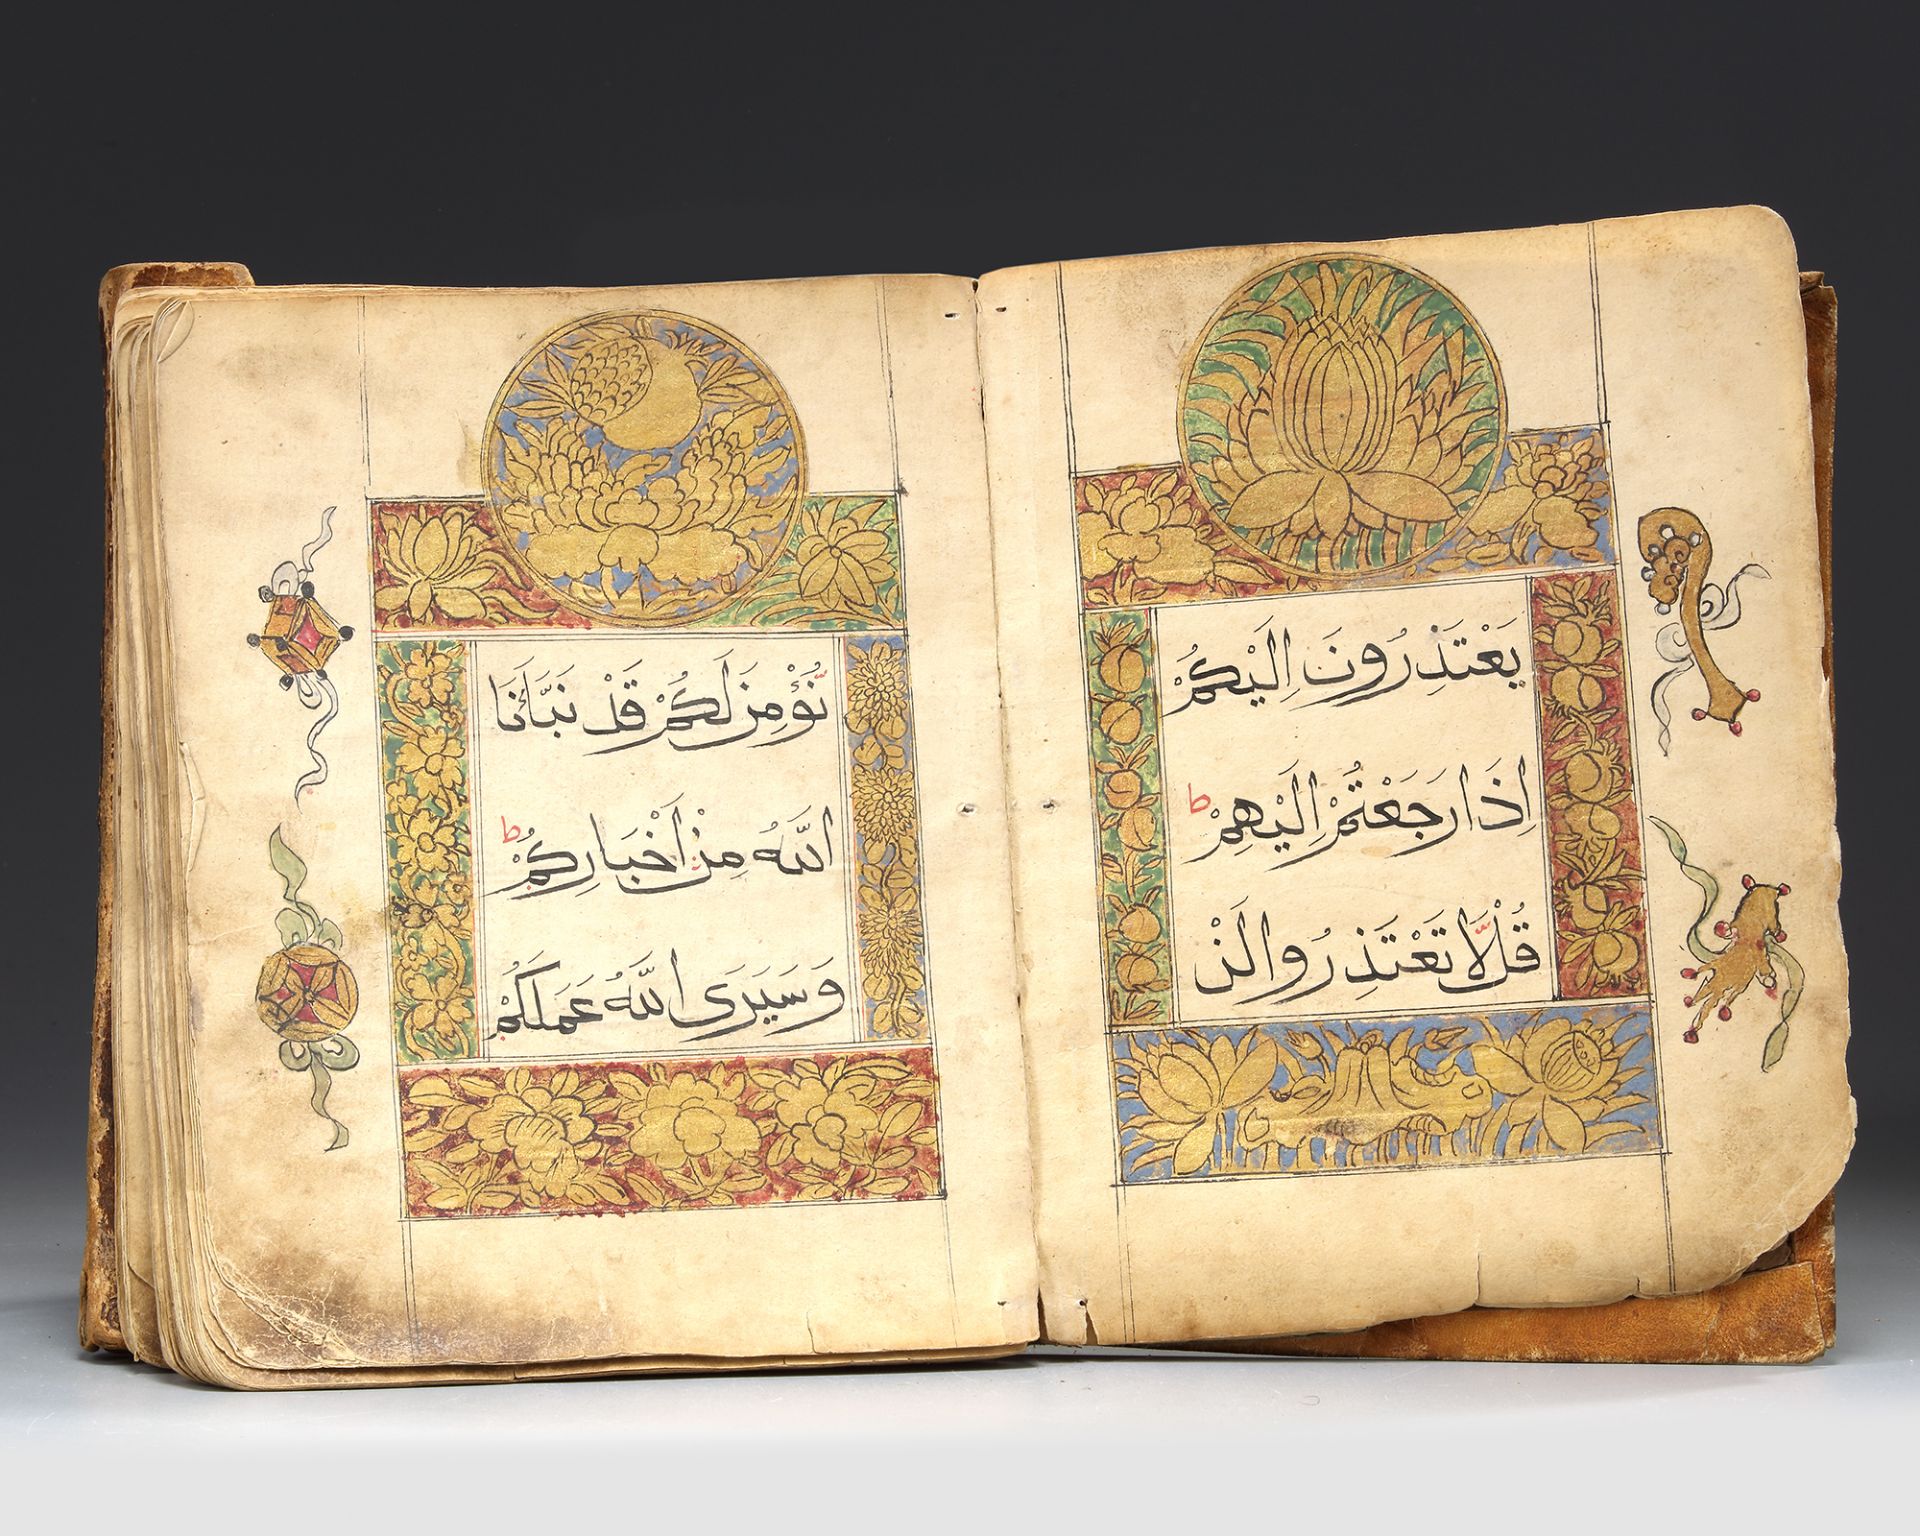 يَعْتَذِرُونَ اِلَيْكُمْ
اِذَا رَجَعْتُمْ اِلَيْهِمْ ط
قُلْ لَّا تَعْتَذِرُوا لَنْ
نُّؤْمِنَ لَكُمْ قَدْ نَبَّاَنَا
اللّٰهُ مِنْ اَخْبَارِكُمْ ط
وَسَيَرَى اللّٰهُ عَمَلَكُمْ